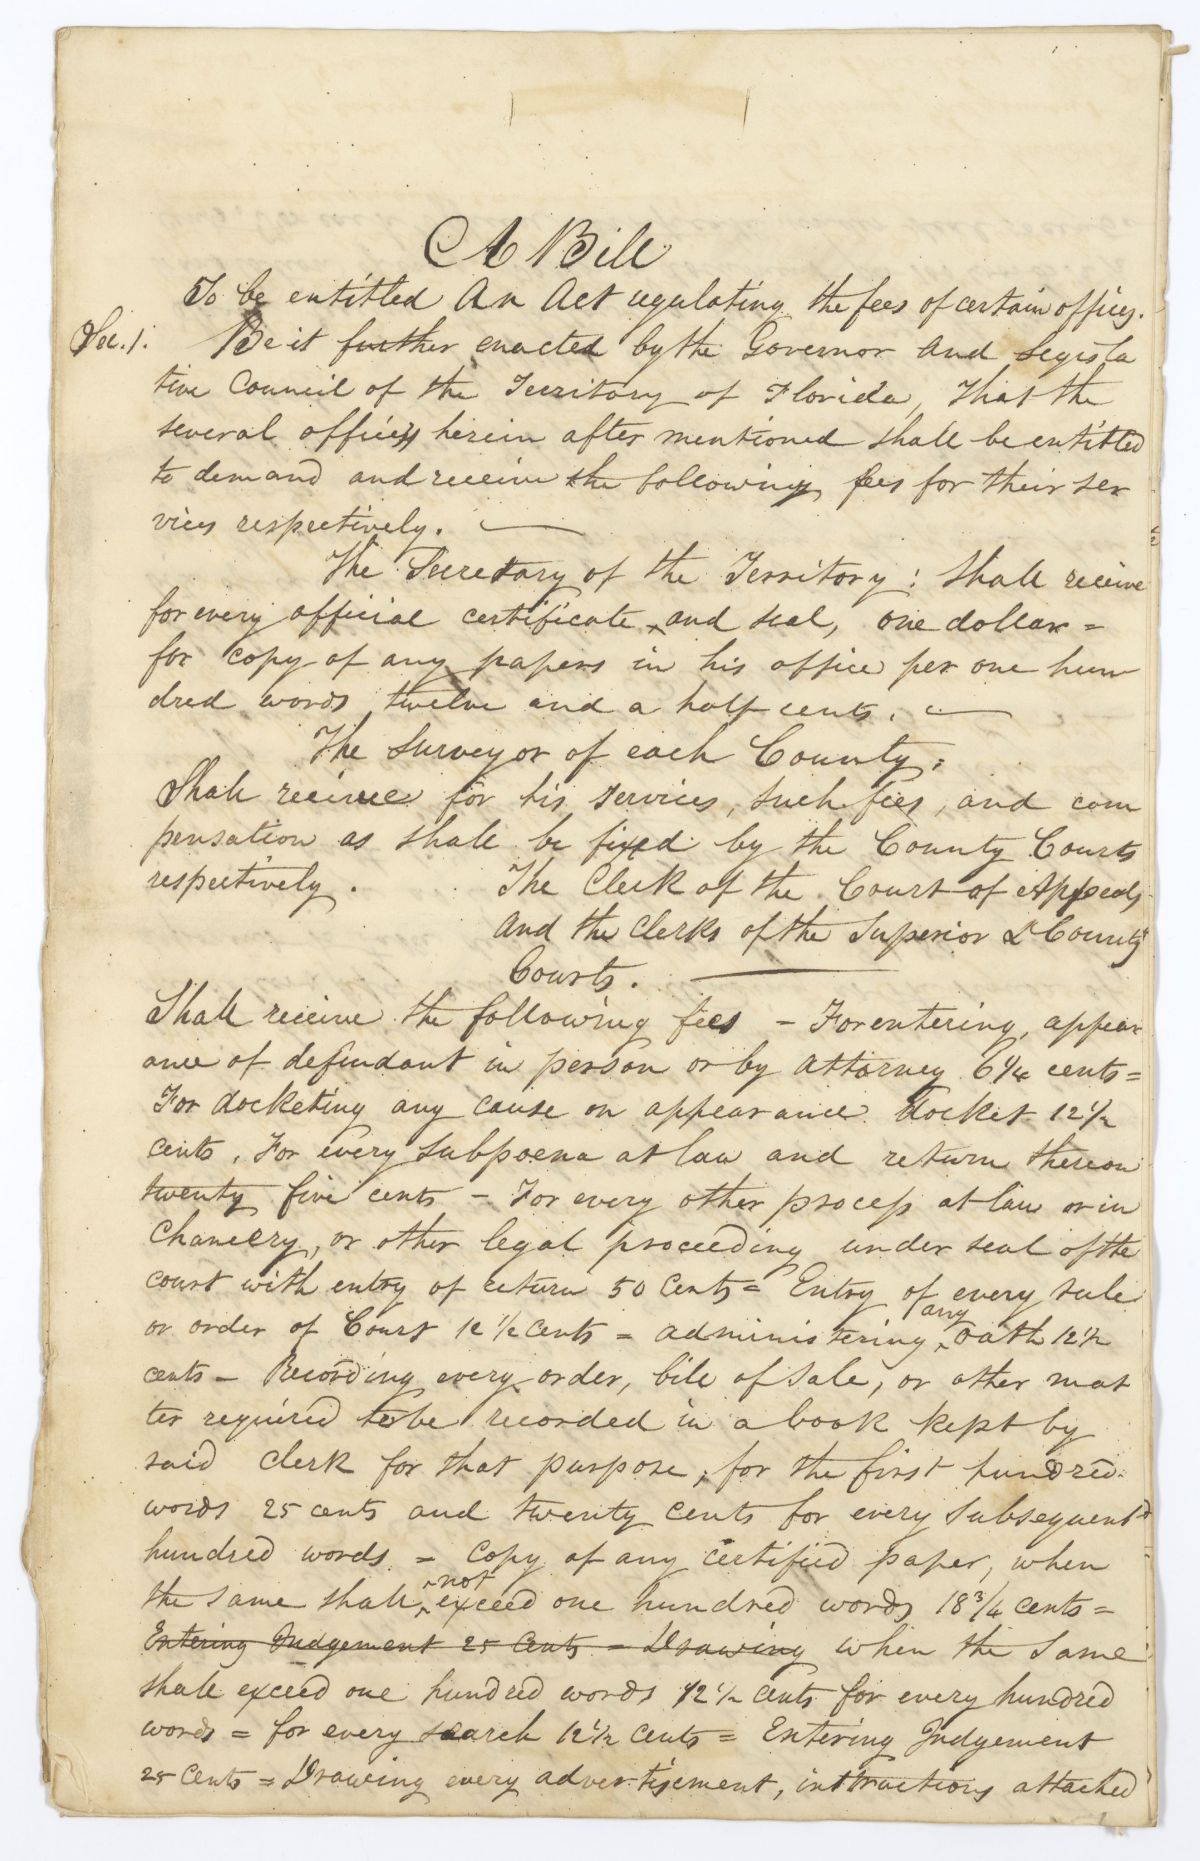 A Bill
To be entitled An Act regulating the fees of certain offices.
Sec. 1. Be it further enacted by the Governor and Legisla
tive Council of the Territory of Florida, That the
several officers herein after mentioned shall be entitled
to demand and receive the following fees for their ser
vices respectively.
The Secretary of the Territory: Shall receive
for every official certificate and seal, one dollar =
for copy of any papers in his office per one hun
dred words twelve and a half cents.
The Surveyor of each County,
Shall receive for his services, such fees, and com
pensation as shall be fixed by the County Courts
respectively.
The Clerk of the Court of Appeals
and the Clerks of the Superior & County
Courts.
Shall receive the following fees - For entering, appear
ance of defendant in person or by attorney 6 1/4 cents =
For docketing any cause on appearance docket 12 1/2
cents, For every subpoena at law and return thereon
twenty five cents - For every other process at law or in
Chancery, or other legal proceeding under seal of the
court with entry of return 50 Cents = Entry of every rule
or order of Court 12 1/2 cents = administering any oath 12 1/2
cents - Recording every order, bill of Sale, or other mat
ter required to be recorded in a book kept by
said Clerk for that purpose, for the first hundred
words 25 cents and twenty cents for every subsequent
hundred words = Copy of any certified paper, when
the same shall not exceed one hundred words 18 3/4 cents =
Entering Judgement 25 Cents = Drawing when the same
shall exceed one hundred words 12 1/2 cents for every hundred
words = for every search 12 1/2 cents = Entering Judgement
25 Cents = Drawing every advertisement, instructions attached